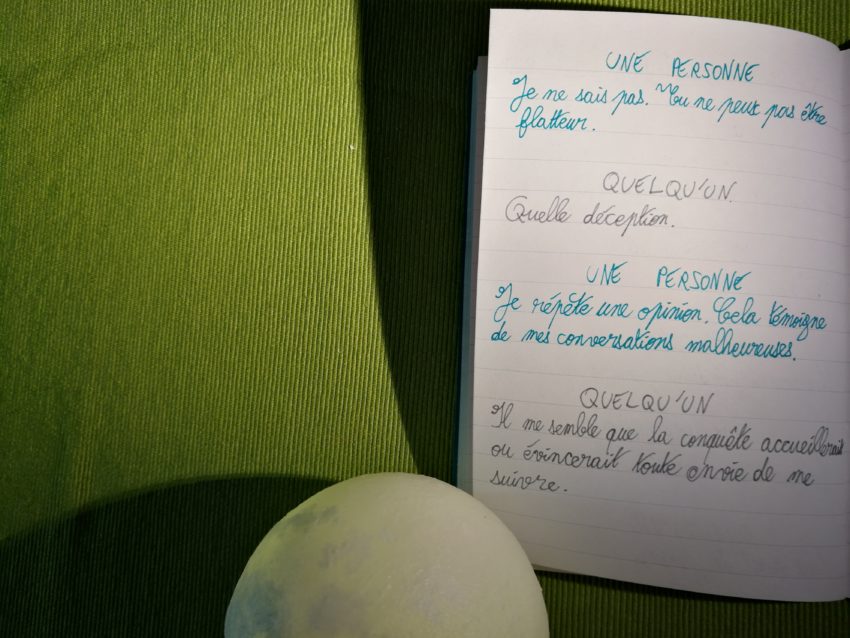 UNE PERSONNE
Je ne sais pas. Tu ne peux pas être
flatteur.
QUELQU'UN.
Quelle déception.
UNE PERSONNE
Je répète une opinion. Cela témoigne
de mes conversations malheureuses.
QUELQU'UN
Il me semble que la conquête accueillerait
ou évincerait toute envie de me
suivre.